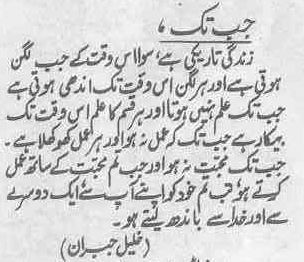 جب تک ،
زندگی تاریکی ہے، سوا اس وقت کے جب لگن
ہوتی ہے اور ہر لگن اس وقت تک اندھی ہوتی ہے
جب تک علم نہیں ہوتا اور ہر قسم کا علم اس وقت تک
بیکار ہے جب تک کہ عمل نہ ہو اور ہر عمل کھوکھلا ہے۔
جب تک محبت نہ ہو اور جب تم محبت کے ساتھ عمل
کرتے ہو تب تم خود کو اپنے آپ سے ایک دوسرے
سے اور خدا سے باندھ لیتے ہو۔
(خلیل جبران)